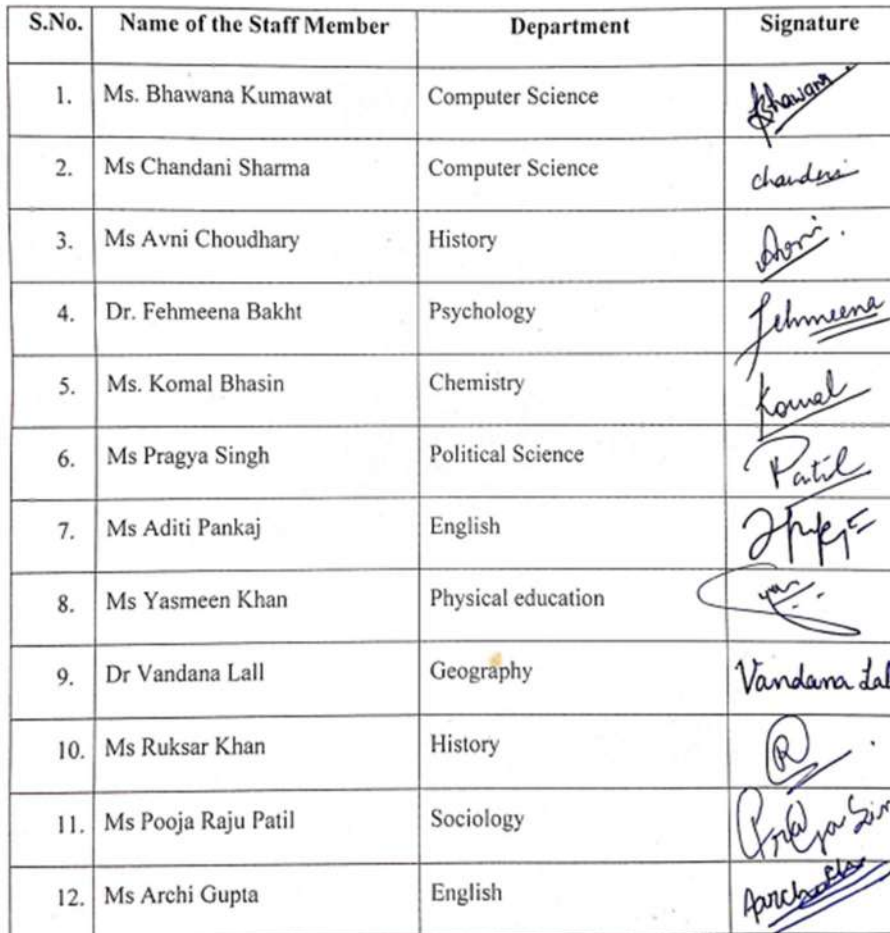 S.No. Name of the Staff Member Department Signature
1. Ms. Bhawana Kumawat Computer Science Bhawana
2. Ms Chandani Sharma Computer Science chandani
3. Ms Avni Choudhary History Avni
4. Dr. Fehmeena Bakht Psychology Fehmeena
5. Ms. Komal Bhasin Chemistry Komal
6. Ms Pragya Singh Political Science Patil
7. Ms Aditi Pankaj English
8. Ms Yasmeen Khan Physical education
9. Dr Vandana Lall Geography Vandana Lal
10. Ms Ruksar Khan History R
11. Ms Pooja Raju Patil Sociology Pragya Sin
12. Ms Archi Gupta English